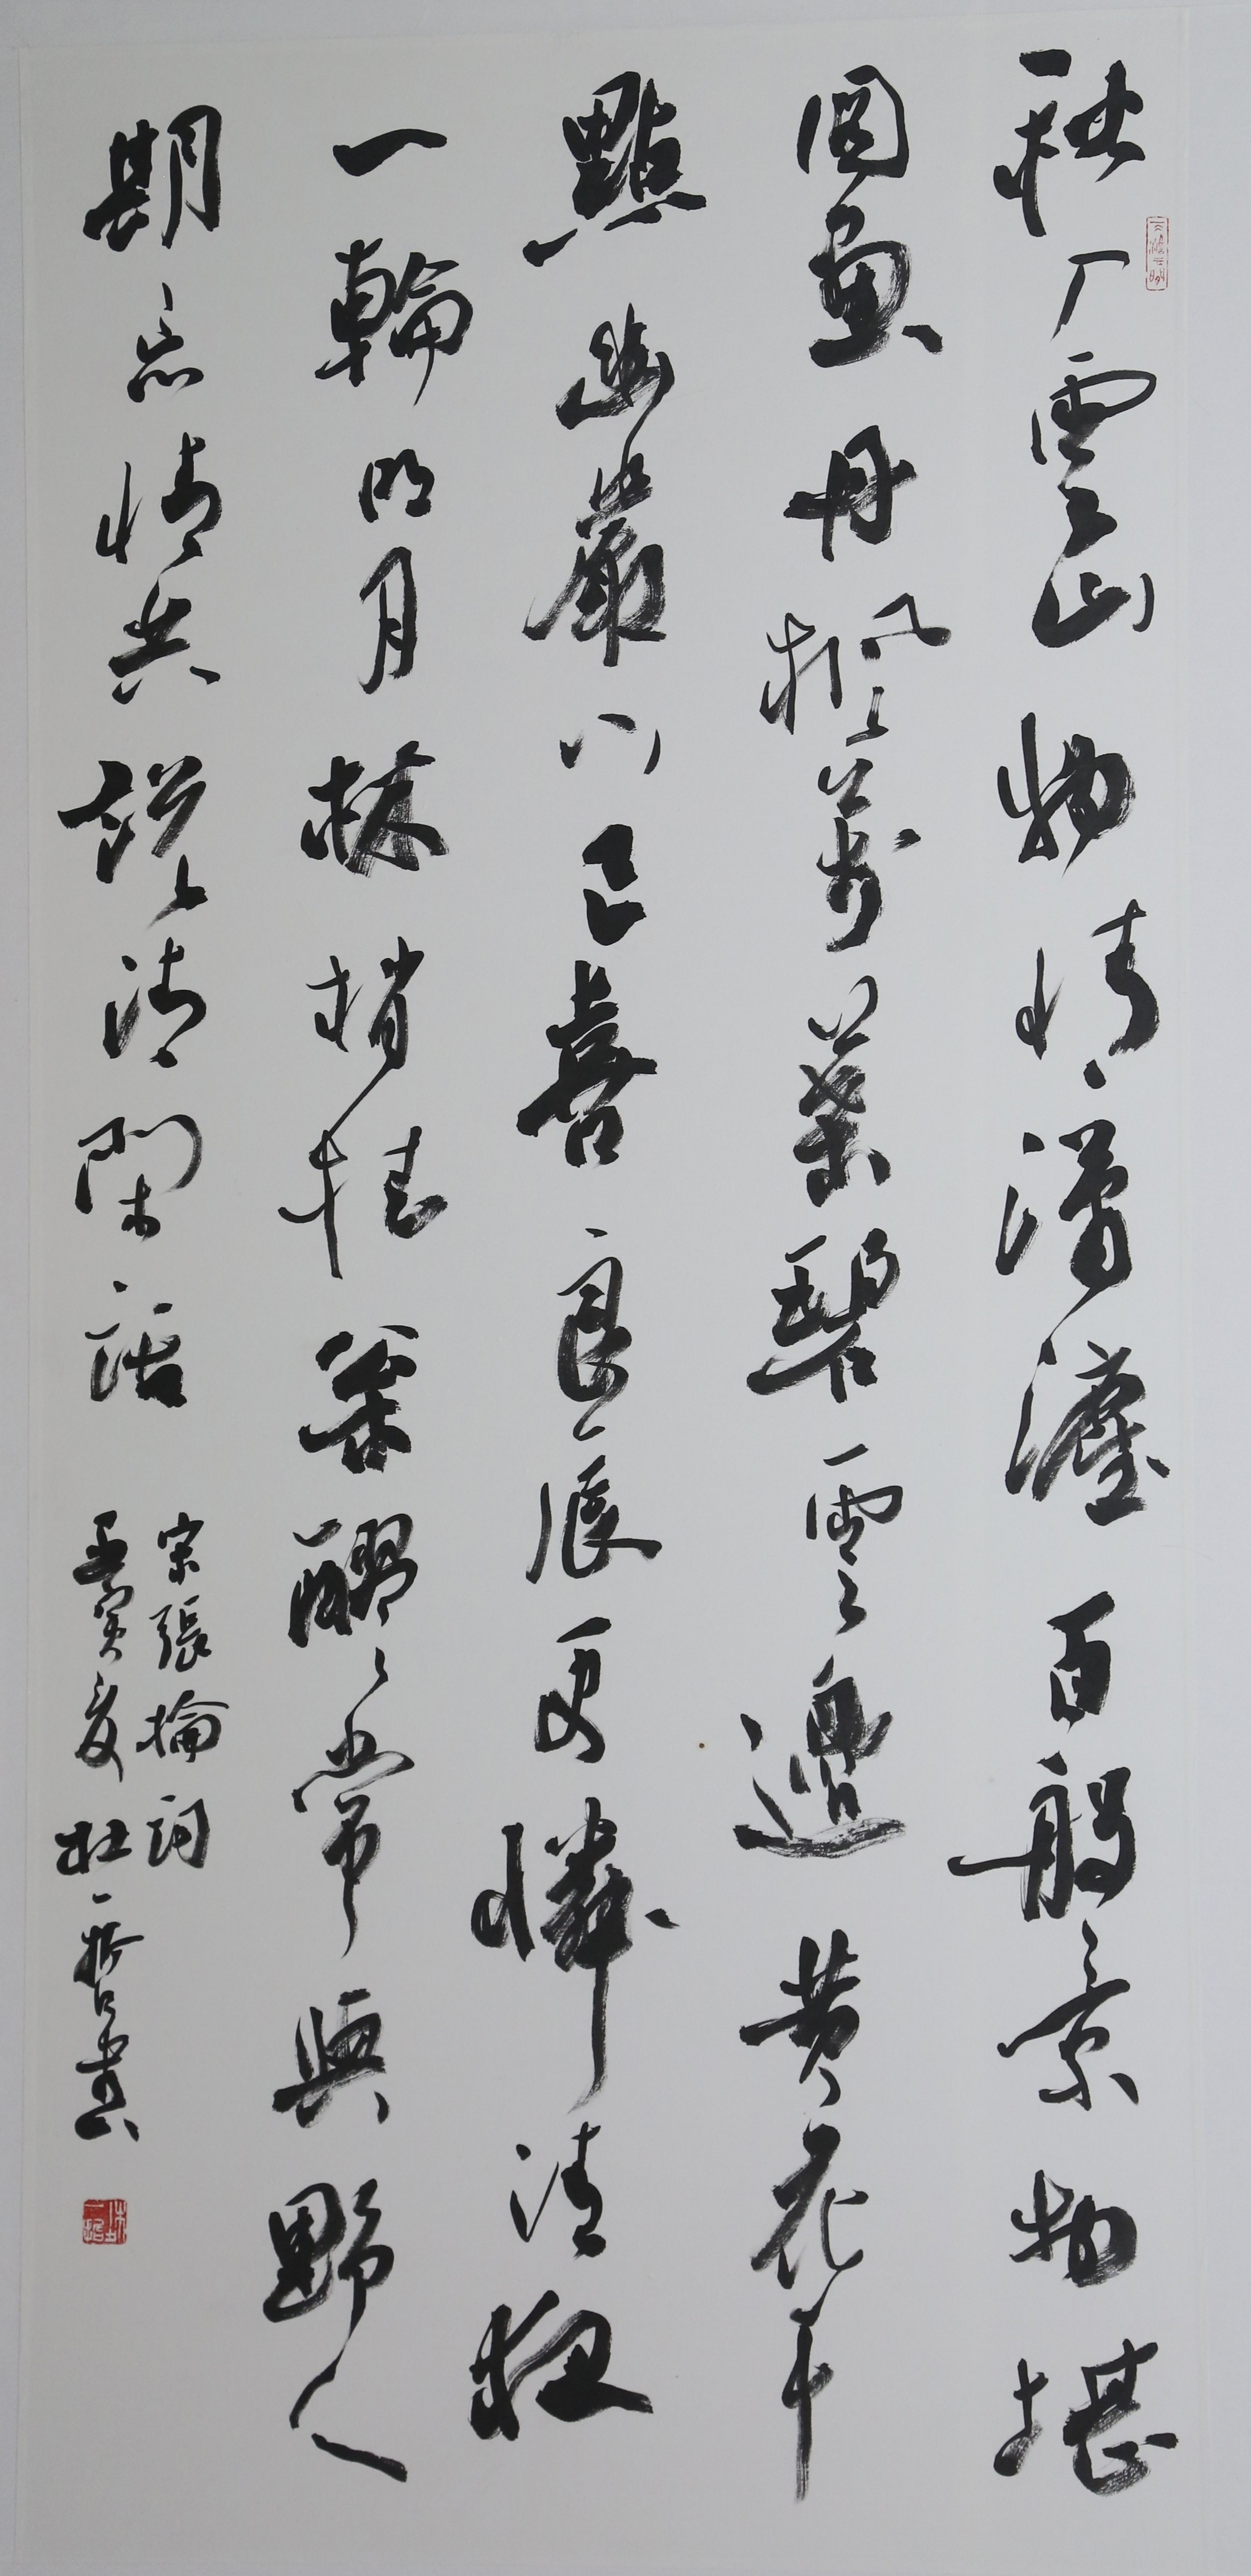 秋入雲山物情瀟灑百般景物堪
圖畫丹楓萬葉碧雲邊黄花千
點幽巖下已喜良辰更憐清夜
一輪明月林梢挂松醪常與野人
期忘情共說清閑話
宋張掄詞
壬寅夏杜一哲書